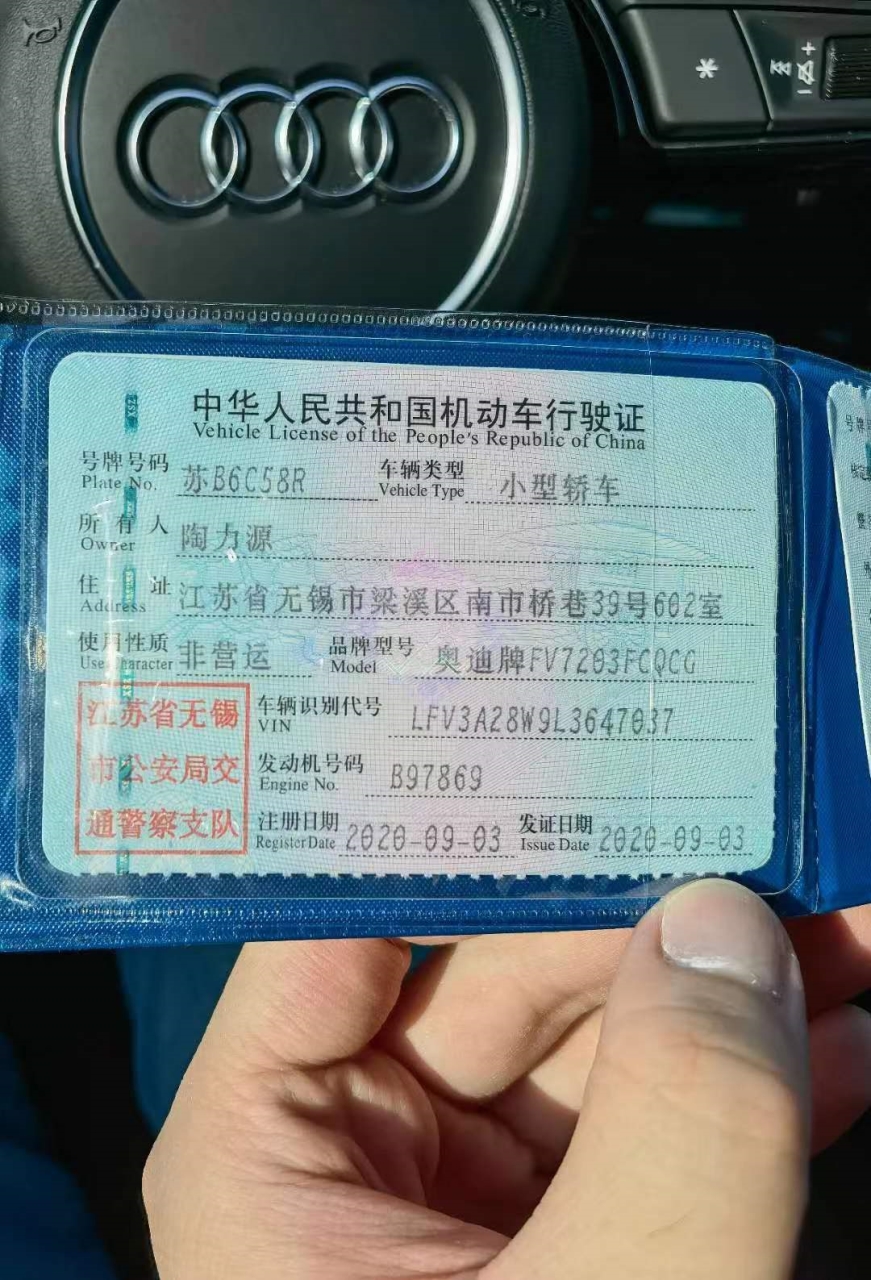 中华人民共和国机动车行驶证
Vehicle License of the People's Republic of China
号牌号码 苏B6C58R 车辆类型 小型轿车
Plate No. Vehicle Type
所有人 陶力源
Owner
住址 江苏省无锡市梁溪区南市桥巷39号602室
Address
使用性质 非营运 品牌型号 奥迪牌FV7203FCQCG
Use Character Model
江苏省无锡
市公安局交
通警察支队
车辆识别代号 LFV3A28W9L3647037
VIN
发动机号码 B97869
Engine No.
注册日期 2020-09-03 发证日期 2020-09-03
Register Date Issue Date
号牌